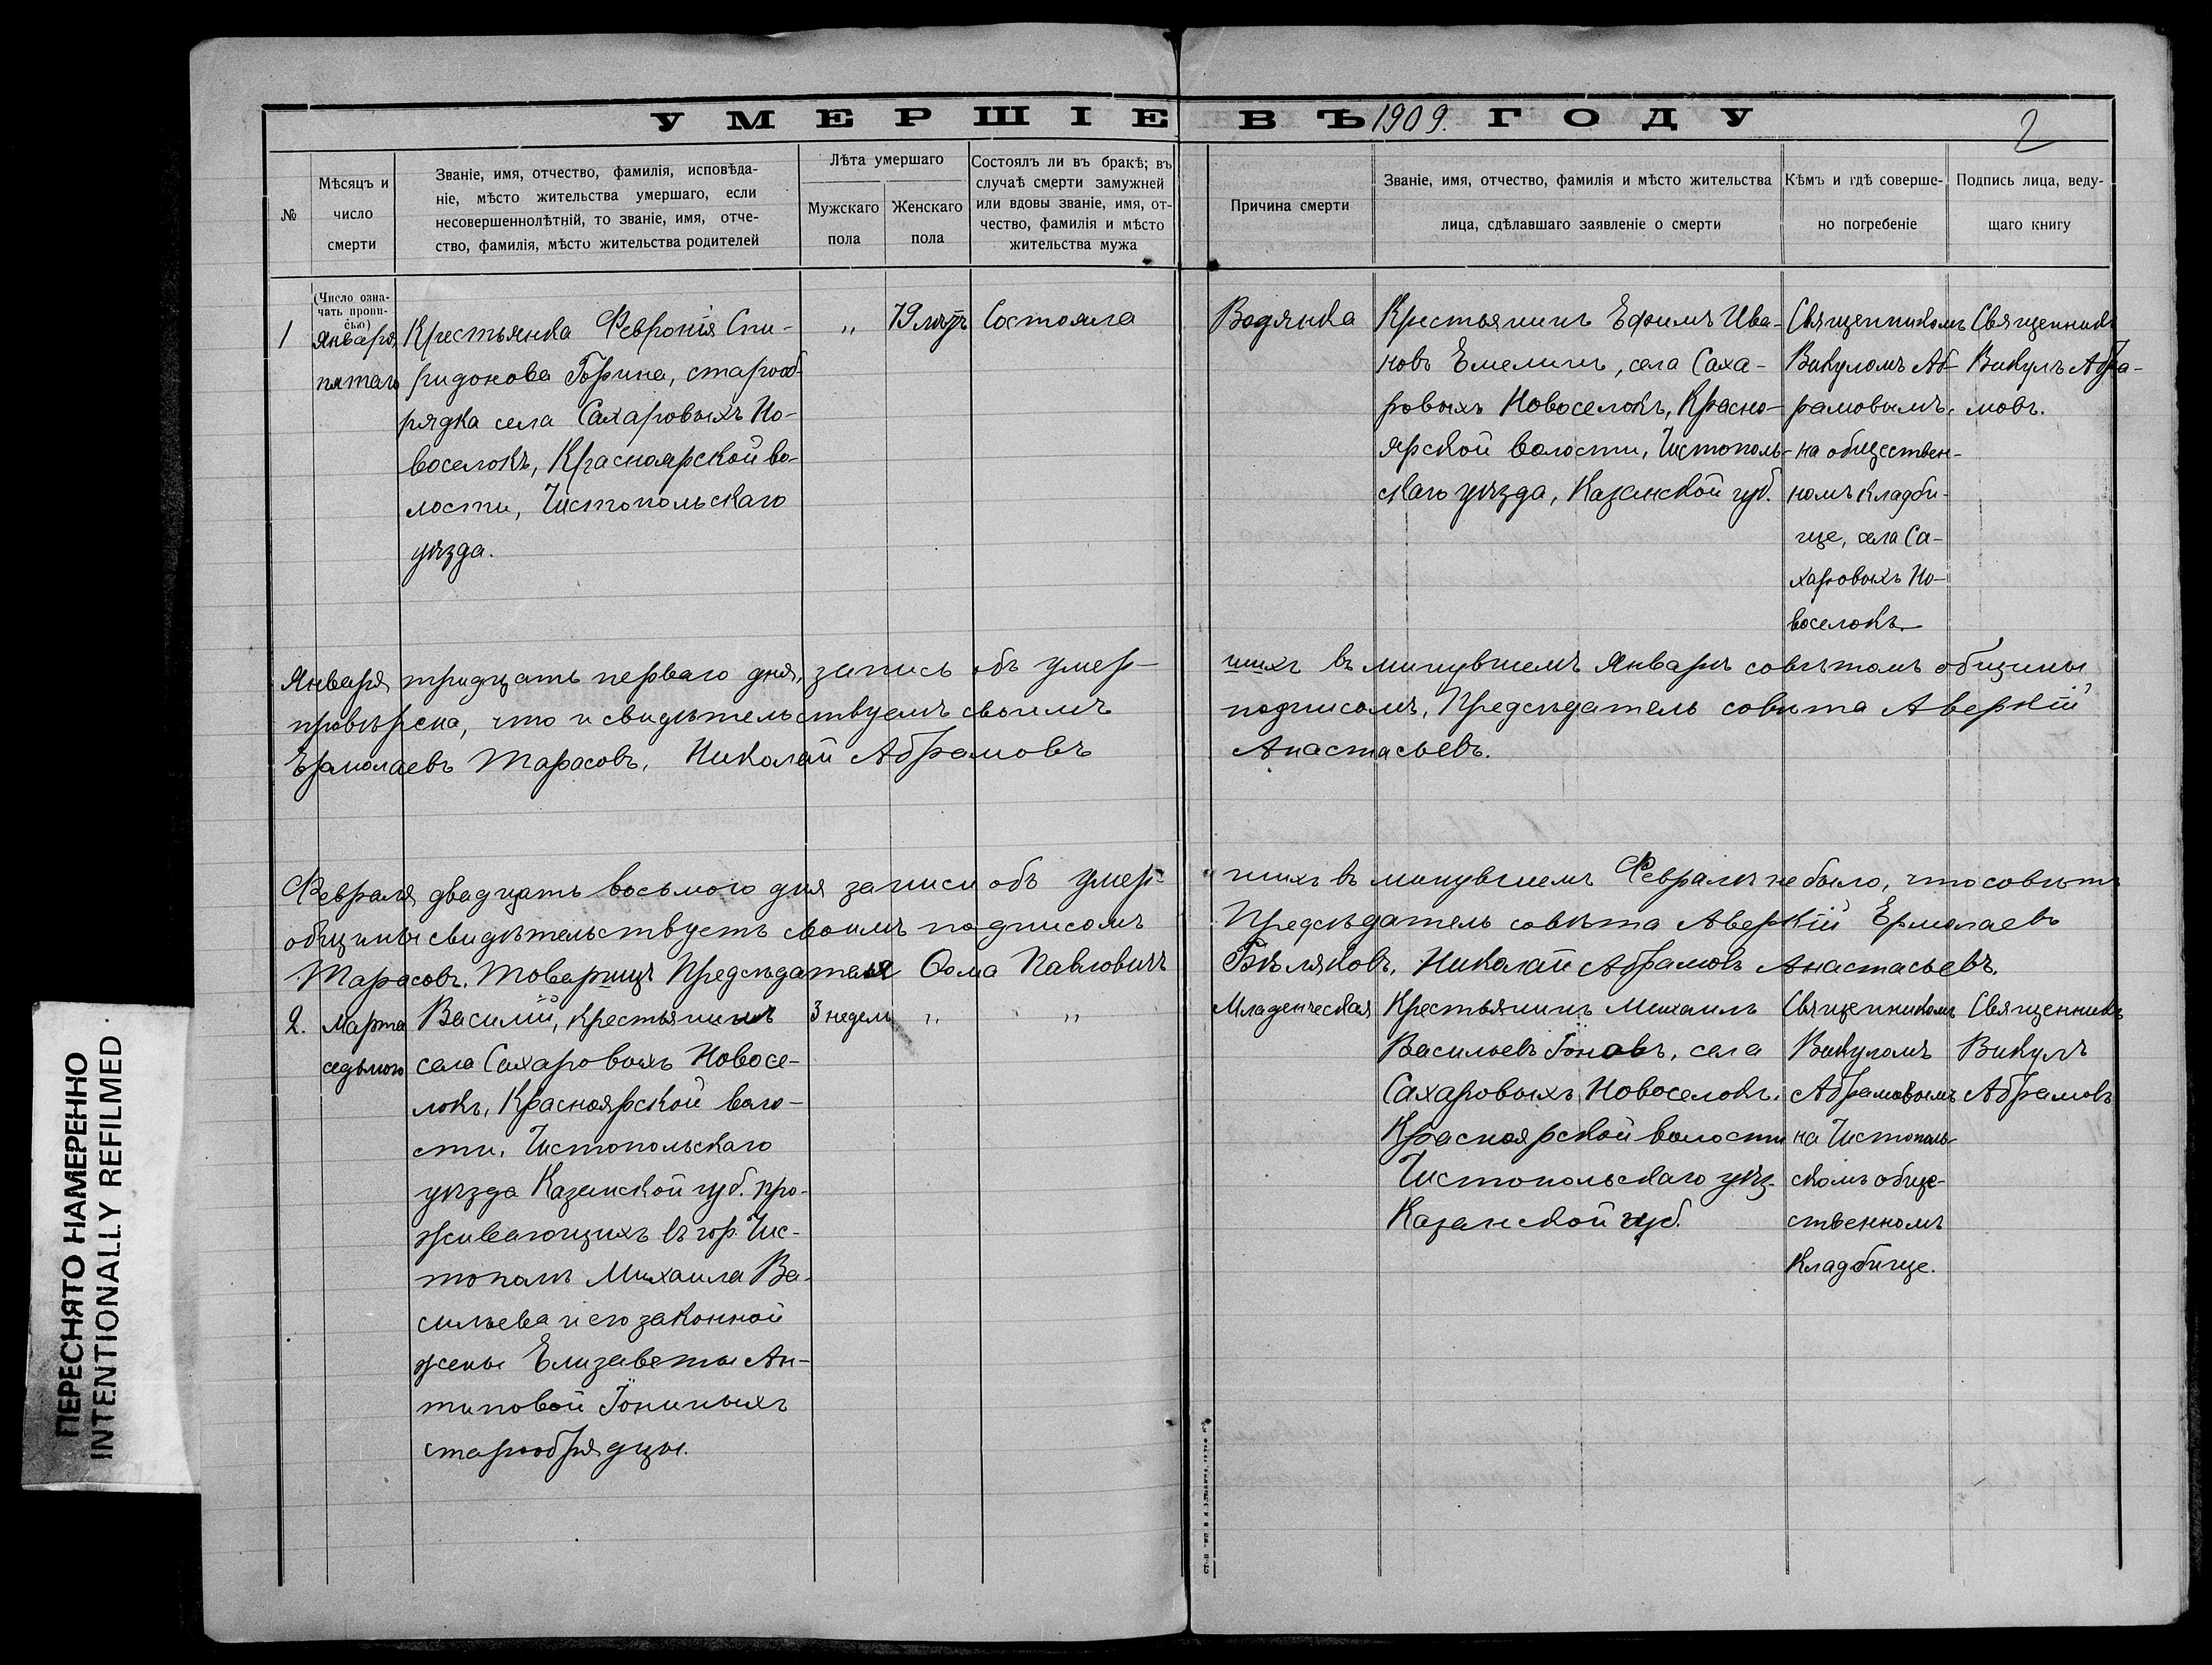 УМЕРШІЕ ВЪ 1909. ГОДУ
2
№
Мѣсяцъ и
число
смерти
Званіе, имя, отчество, фамилія, исповѣда-
ніе, мѣсто жительства умершаго, если
несовершеннолѣтній, то званіе, имя, отче-
ство, фамилія, мѣсто жительства родителей
Лѣта умершаго
Мужскаго
пола
Женскаго
пола
Состоялъ ли въ бракѣ; въ
случаѣ смерти замужней
или вдовы званіе, имя, от-
чество, фамилія и мѣсто
жительства мужа
Причина смерти
Званіе, имя, отчество, фамилія и мѣсто жительства
лица, сдѣлавшаго заявленіе о смерти
Кѣмъ и гдѣ соверше-
но погребеніе
Подпись лица, веду-
щаго книгу
1
(Число озна-
чать пропи-
сью)
Января
пятаго
Крестьянка Февронія Спи-
ридонова Горина, старооб-
рядка села Сахаровыхъ Но-
воселокъ, Красноярской во-
лости, Чистопольскаго
уѣзда.
„
79 лѣтъ
Состояла
Водянка
Крестьянинъ Ефимъ Ива-
новъ Емелинъ, села Саха-
ровыхъ Новоселокъ, Красно-
ярской волости, Чистополь-
скаго уѣзда, Казанской губ.
Священникомъ
Викуломъ Аб-
рамовымъ,
на обществен-
номъ кладби-
ще, села Са-
харовыхъ Но-
воселокъ.
Священникъ
Викулъ Абра-
мовъ.
Января тридцать перваго дня, запись объ умер-
шихъ въ минувшемъ Январѣ совѣтомъ общины
провѣрена, что и свидѣтельствуемъ своимъ
подписомъ, Предсѣдатель совѣта Аверкій
Ермолаевъ Тарасовъ, Николай Абрамовъ
Анастасьевъ.
Февраля двадцать восьмого дня записи объ умер-
шихъ въ минувшемъ Февралѣ не было, что совѣтъ
общины свидѣтельствуетъ своимъ подписомъ
Предсѣдатель совѣта Аверкій Ермолаевъ
Тарасовъ. Товарищъ Предсѣдателя Фома Павловичъ
Бѣляковъ, Николай Абрамовъ Анастасьевъ.
2.
Марта
седьмого
Василій, крестьянинъ
села Сахаровыхъ Новосе-
локъ, Красноярской воло-
сти, Чистопольскаго
уѣзда Казанской губ. про-
живающихъ въ гор. Чис-
тополѣ Михаила Ва-
сильева и его законной
жены Елизаветы Ан-
типовой Іониныхъ
старообрядцы.
3 недель
„
„
Младенческая
Крестьянинъ Михаилъ
Васильевъ Іоновъ, села
Сахаровыхъ Новоселокъ,
Красноярской волости
Чистопольскаго уѣз.
Казанской губ.
Священникомъ
Викуломъ
Абрамовымъ
на Чистополь-
скомъ обще-
ственномъ
кладбище.
Священникъ
Викулъ
Абрамовъ
ПЕРЕСНЯТО НАМЕРЕННО
INTENTIONALLY REFILMED